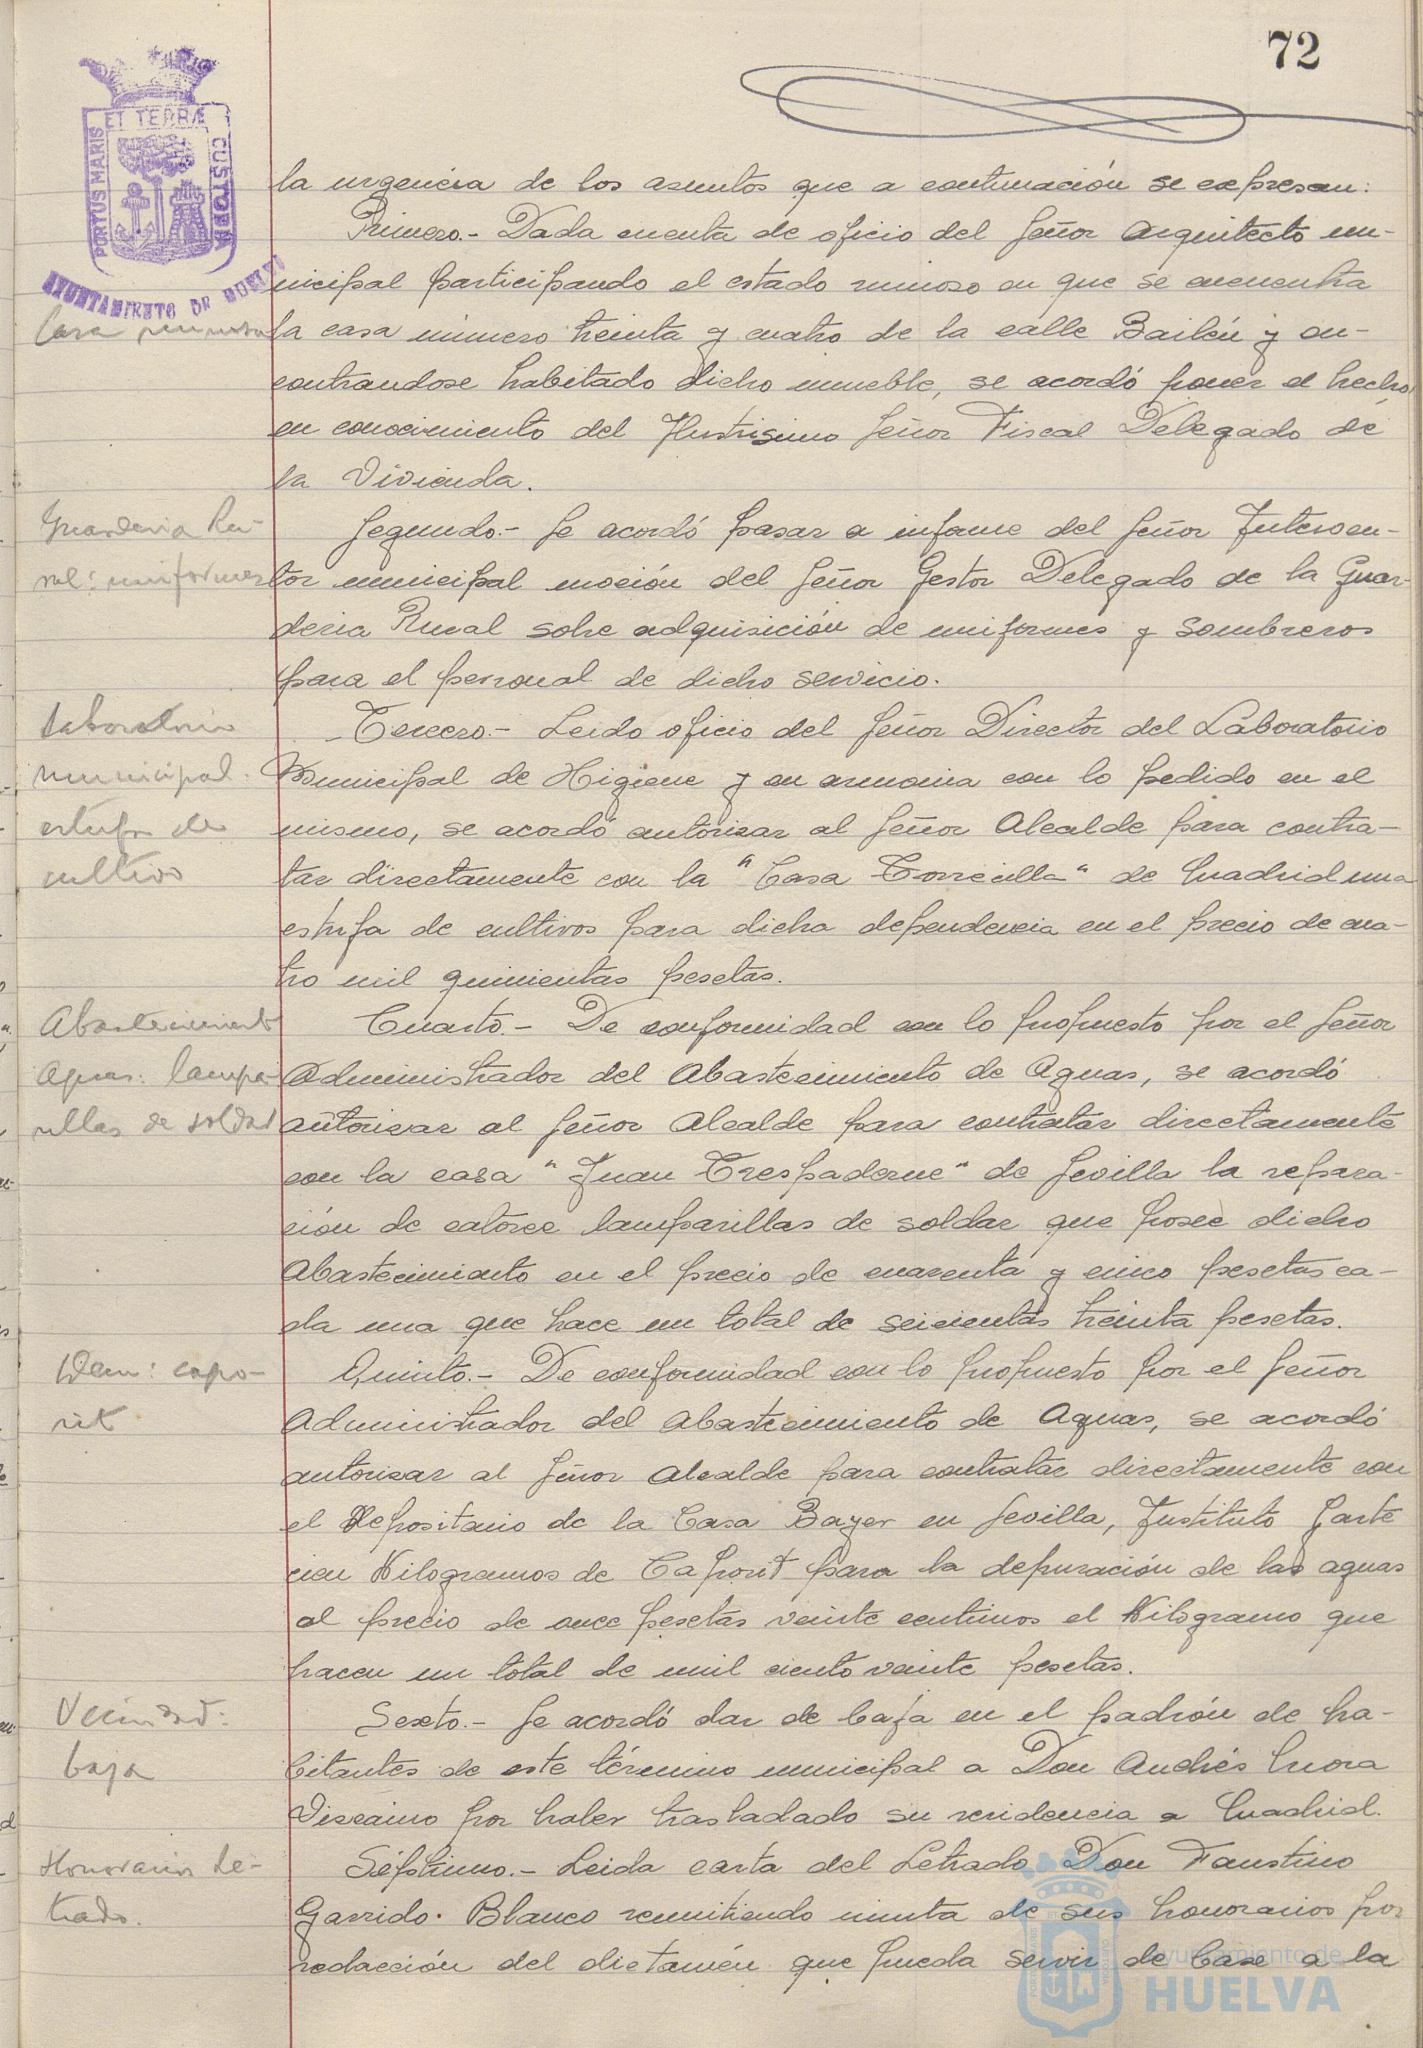 72
PORTUS MARIS ET TERRÆ CUSTODIA
AYUNTAMIENTO DE HUELVA
la urgencia de los asuntos que a continuación se expresan:
Primero.- Dada cuenta de oficio del Señor Arquitecto mu-
nicipal participando el estado ruinoso en que se encuentra
Casa ruinosa
la casa número treinta y cuatro de la calle Bailén y en-
contrandose habitado dicho inmueble, se acordó poner el hecho
en conocimiento del Ilustrisimo Señor Fiscal Delegado de
la Vivienda.
Guarderia Ru-
ral: uniformes
Segundo.- Se acordó pasar a informe del Señor Interven-
tor municipal moción del Señor Gestor Delegado de la Guar-
deria Rural sobre adquisición de uniformes y sombreros
para el personal de dicho servicio.
Laboratorio
municipal:
estufa de
cultivo
Tercero.- Leido oficio del Señor Director del Laboratorio
Municipal de Higiene y en armonia con lo pedido en el
mismo, se acordó autorizar al Señor Alcalde para contra-
tar directamente con la "Casa Torrecilla" de Madrid una
estufa de cultivos para dicha dependencia en el precio de cua-
tro mil quinientas pesetas.
Abastecimiento
Aguas: lampa-
rillas de soldar
Cuarto.- De conformidad con lo propuesto por el Señor
Administrador del Abastecimiento de Aguas, se acordó
autorizar al Señor Alcalde para contratar directamente
con la casa "Juan Trespaderne" de Sevilla la repara-
ción de catorce lamparillas de soldar que posee dicho
Abastecimiento en el precio de cuarenta y cinco pesetas ca-
da una que hace un total de seicientas treinta pesetas.
Idem: capo-
rit
Quinto.- De conformidad con lo propuesto por el Señor
Administrador del Abastecimiento de Aguas, se acordó
autorizar al Señor Alcalde para contratar directamente con
el Depositario de la Casa Bayer en Sevilla, Instituto Gaste
cien Kilogramos de Caporit para la depuración de las aguas
al precio de once pesetas veinte centimos el Kilogramo que
hacen un total de mil ciento veinte pesetas.
Vecindad:
baja
Sexto.- Se acordó dar de baja en el padrón de ha-
bitantes de este término municipal a Don Andrés Mora
Viscaino por haber trasladado su residencia a Madrid.
Honorarios Le-
trado.
Séptimo.- Leida carta del Letrado Don Faustino
Garrido Blanco remitiendo minuta de sus honorarios por
redacción del dictamén que pueda servir de base a la
Ayuntamiento de
HUELVA